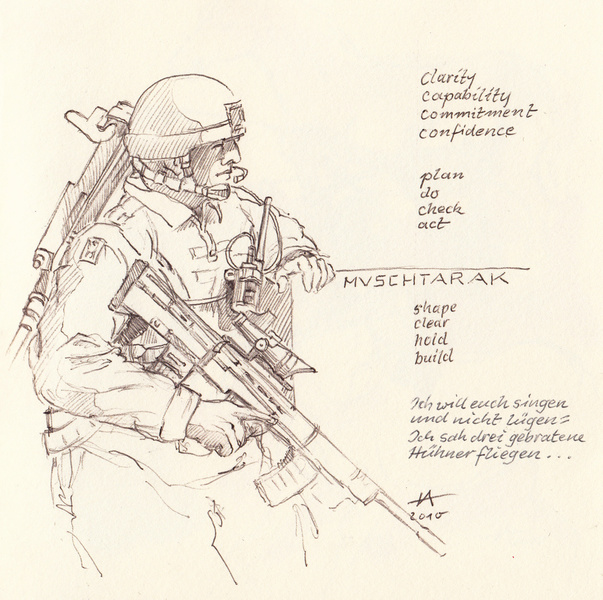 clarity
capability
commitment
confidence
plan
do
check
act
MVSCHTARAK
shape
clear
hold
build
Ich will euch singen
und nicht lügen =
Ich sah drei gebratene
Hühner fliegen ...
2010